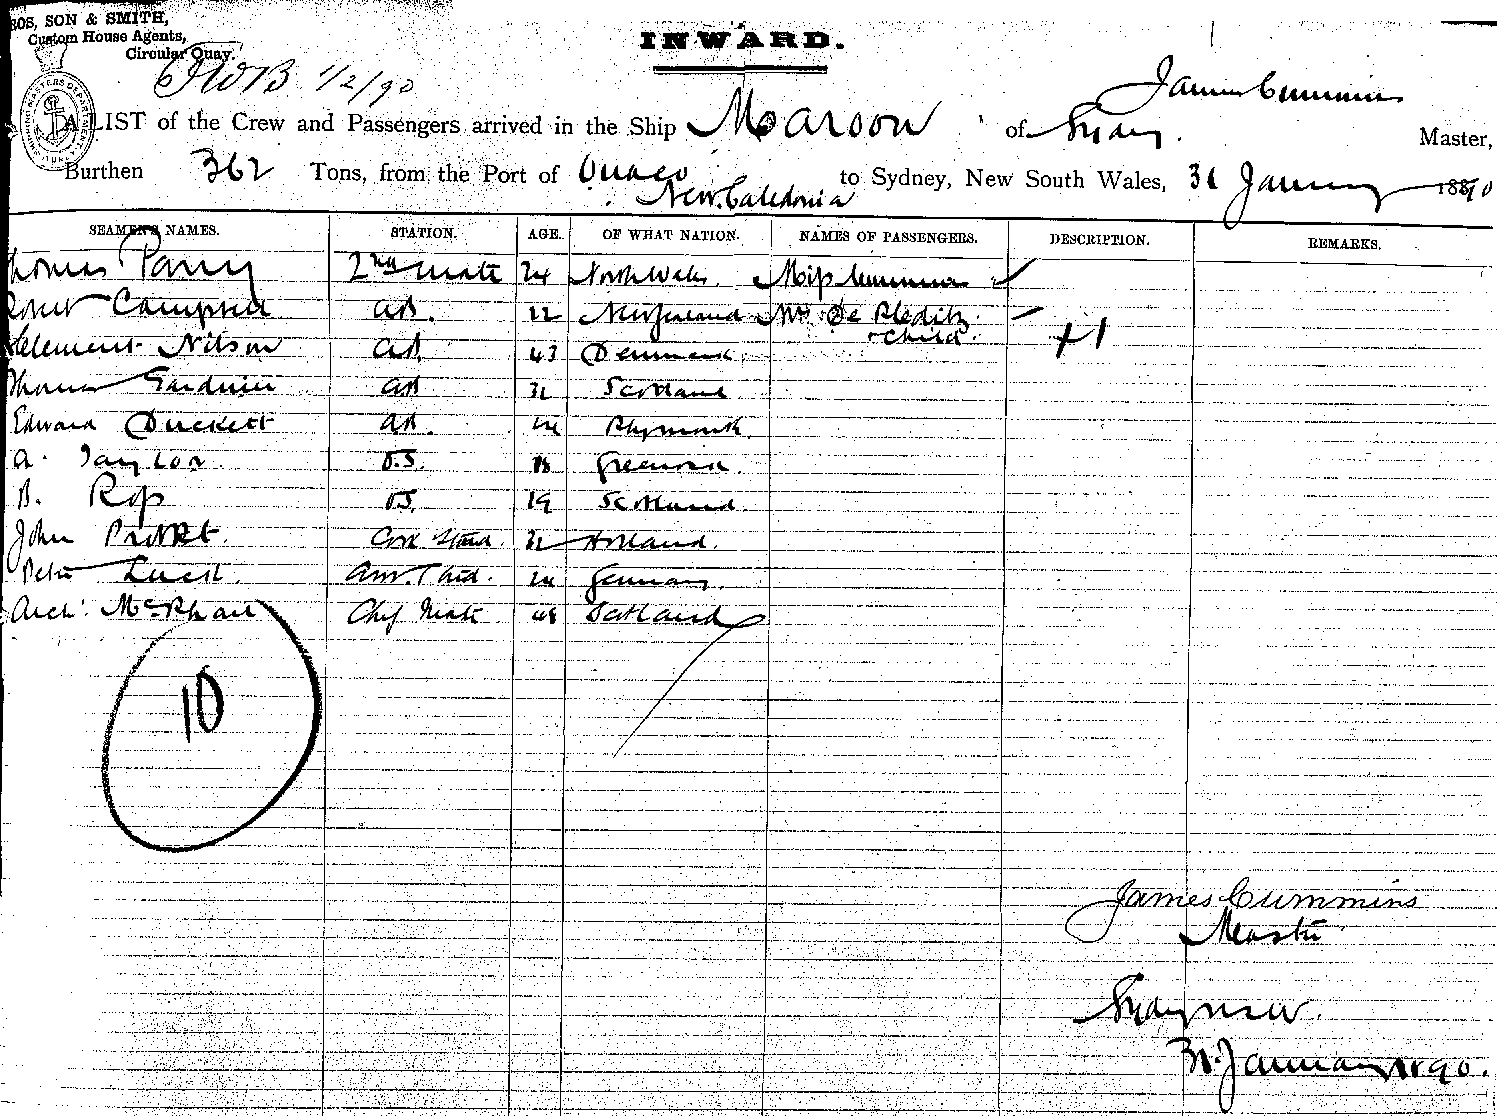 SON & SMITH,
Custom House Agents,
Circular Quay.
INWARD.
1/2/90
James Cummins
A LIST of the Crew and Passengers arrived in the Ship Maroon of Sydney. Master,
Burthen 362 Tons, from the Port of to Sydney, New South Wales, 31 January 1890
New Caledonia
SEAMEN'S NAMES. STATION. AGE. OF WHAT NATION. NAMES OF PASSENGERS. DESCRIPTION. REMARKS.
Thomas Parry 2nd Mate 24 North Wales. Miss Cummins
Campbell AB. 22 New Zealand Mrs De
Clement Nilson AB 43 Denmark + Child. +1
Thomas Gardiner AB 32 Scotland
Edward Duckett AB. 24 Plymouth
A. Taylor O.S. 18
B. Ross O.S. 19 Scotland
John Cook Stwd. 32 Holland.
Peter Luck. 24 Germany.
Arch. McPhail Chief Mate 48 Scotland
10
James Cummins
Master
Sydney NSW.
31 January 1890.